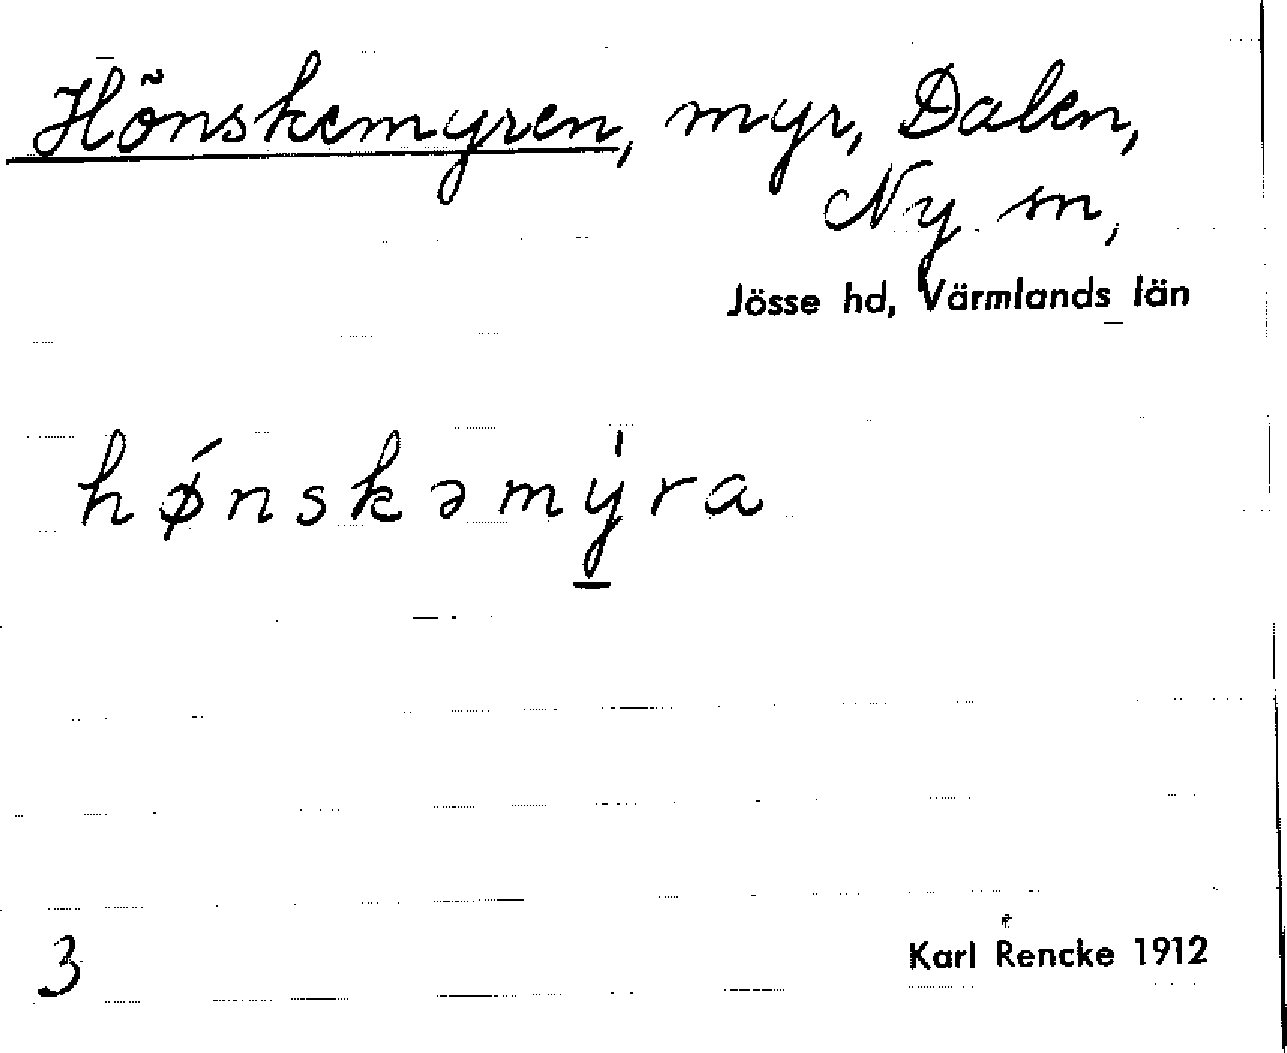 Hönskemyren, myr, Dalen,
Ny sn,
Jösse hd, Värmlands län
hǿnskəmy̠̍ra
3
Karl Rencke 1912